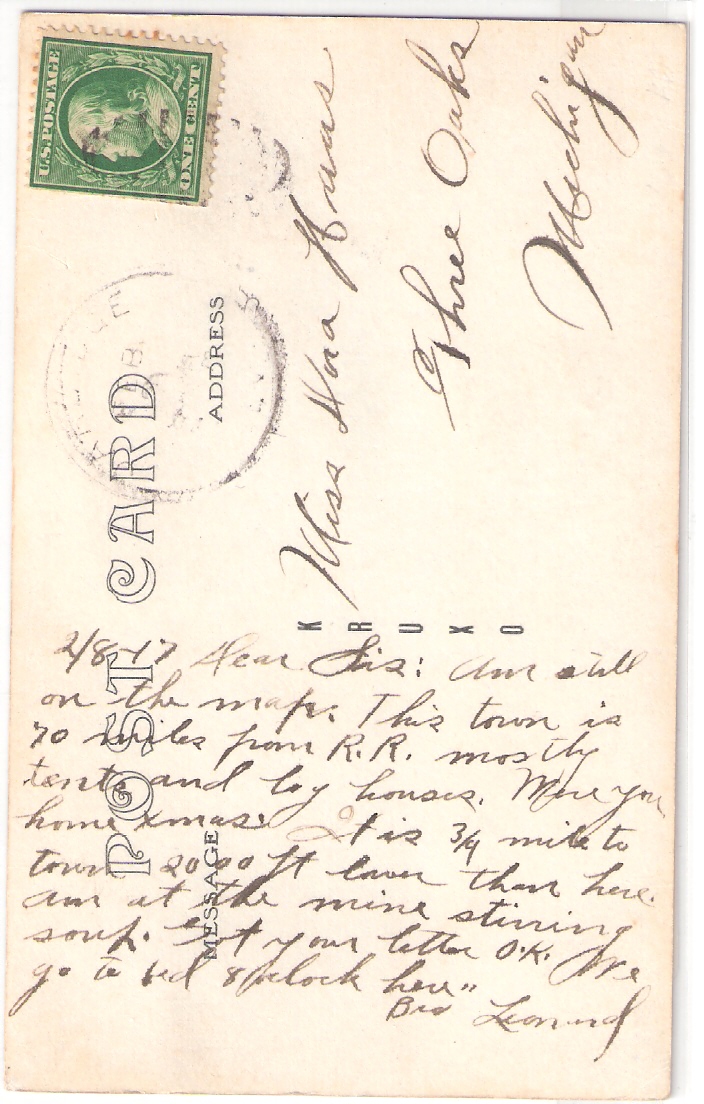 U.S. POSTAGE
ONE CENT
POST CARD
ADDRESS
MESSAGE
Miss Nora
Three Oaks
Michigan
KRUXO
2/8-17 Dear Sis: Am still
on the map. This town is
70 miles from R.R. mostly
tents and log houses. Were you
home xmas. It is 3/4 mile to
town 2000 ft lower than here.
am at the mine stirring
soup. Got your letter O.K. We
go to bed 8 oclock here"
Bro Leonard